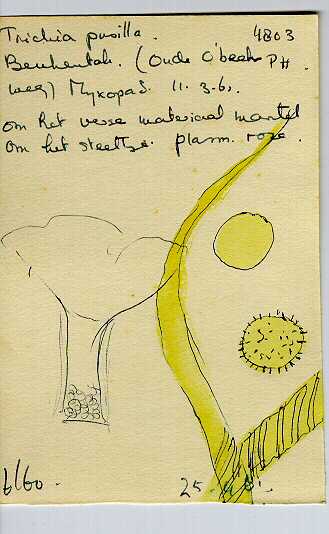 Trichia pusilla. 4803
Beukentak. (Oude O'beek PH
weg) Myxopad. 11.3.61.
om het verse materiaal mantel
om het steeltje. plasm. roze.
6/60. 25.